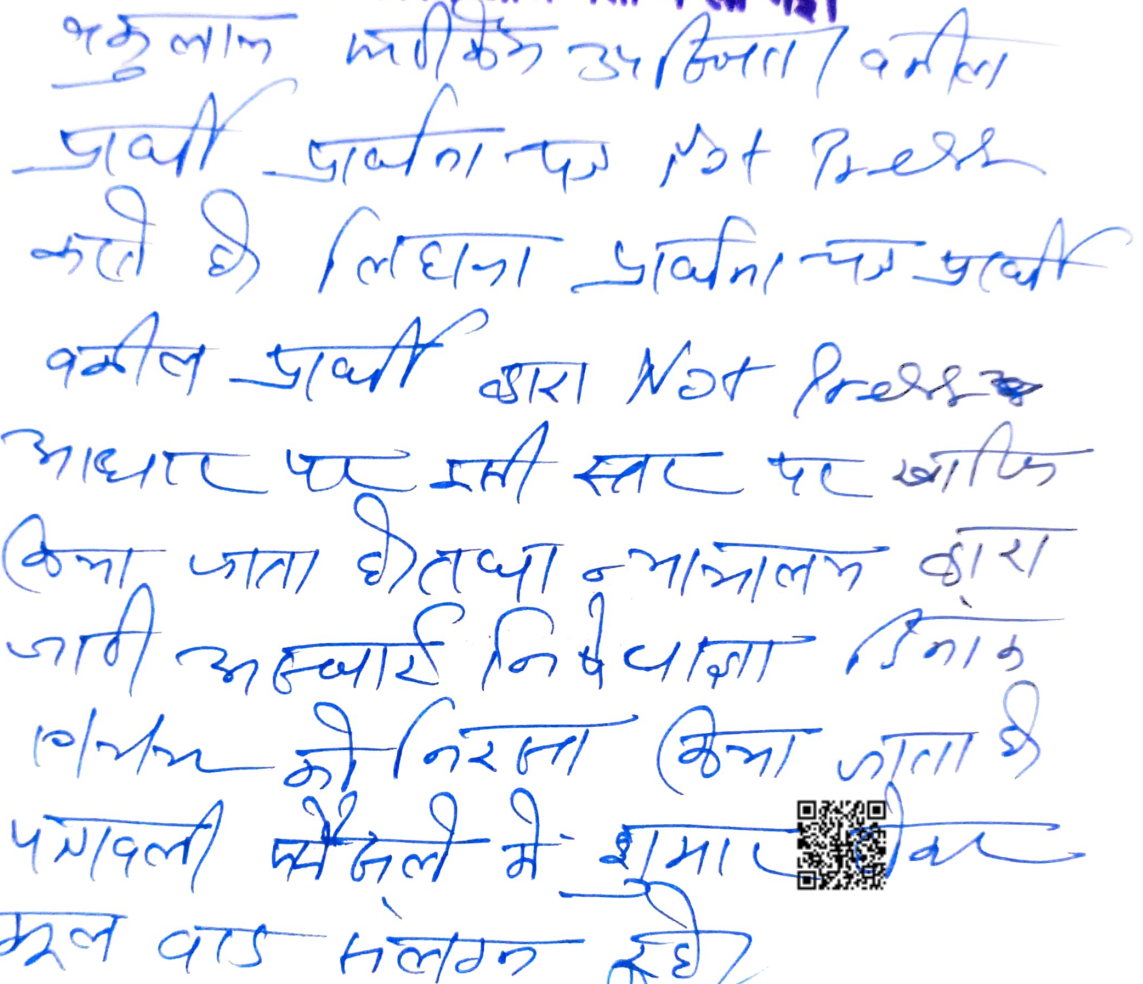 वकुलान फरीकेन उपस्थित। वकील
प्रार्थी प्रार्थना पत्र Not Press
करते है। लिहाजा प्रार्थना पत्र प्रार्थी
वकील प्रार्थी द्वारा Not Press
आधार पर इसी स्तर पर खारिज
किया जाता है। तथा न्यायालय द्वारा
जारी अस्थाई निषेधाज्ञा दिनांक
को निरस्त किया जाता है
पत्रावली फैसले में शुमार होकर
मूल वाद संलग्न रहे।